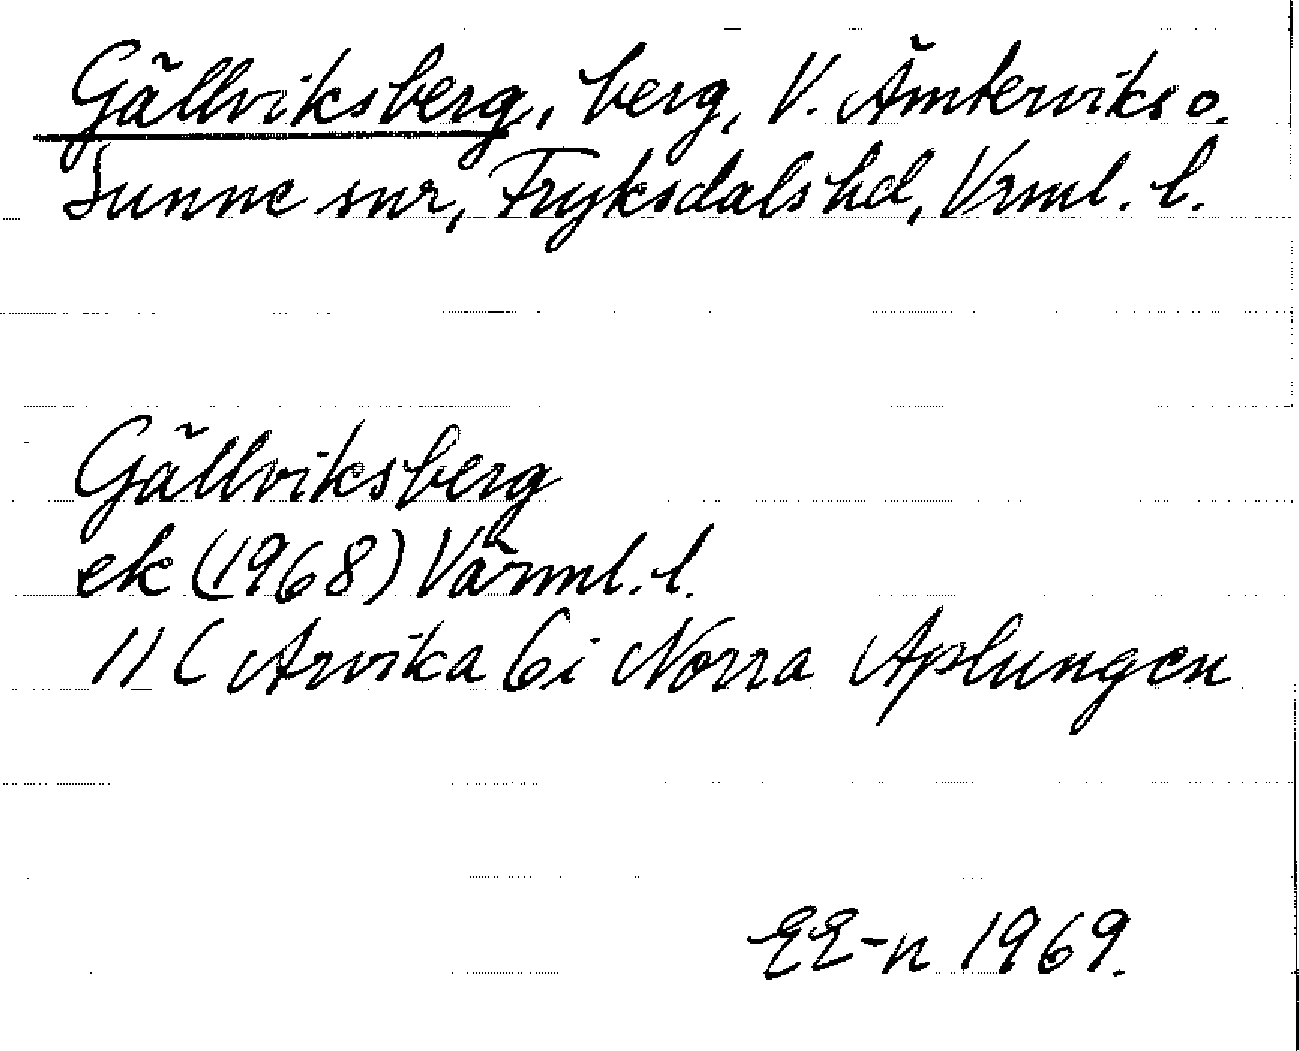 Gällviksberg, berg, V. Ämterviks o.
Sunne snr, Fryksdals hd, Vrml. l.
Gällviksberg
ek (1968) Värml. l.
11 C Arvika 6i Norra Aplungen
EE-n 1969.